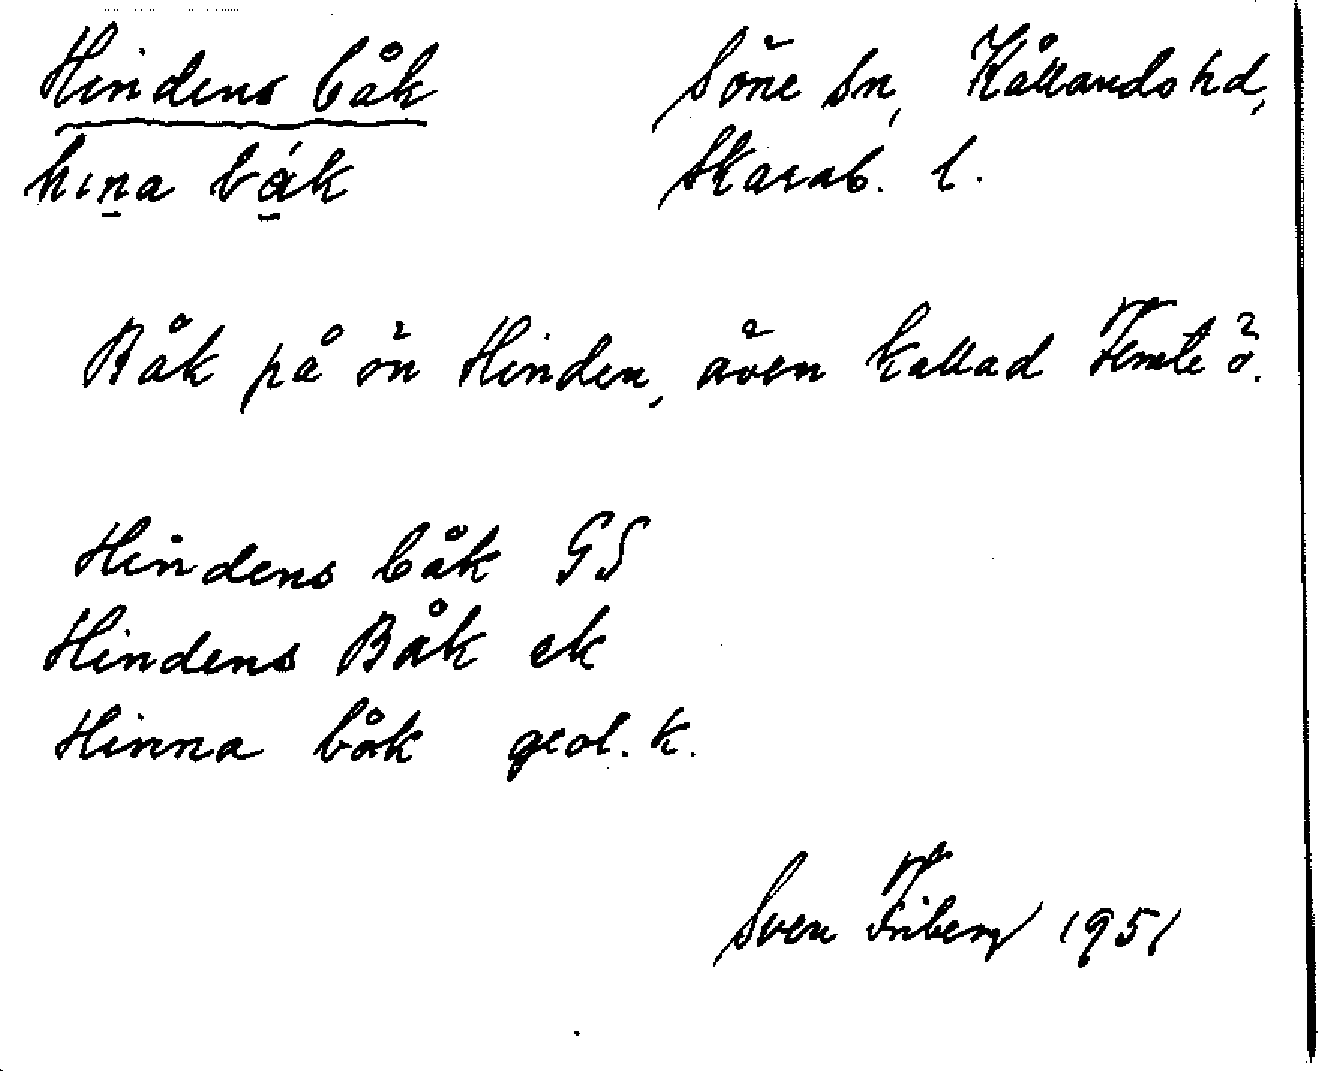 Hindens båk
Söne sn, Kållands hd,
hina bák
Skarab. l.
Båk på ön Hinden, även kallad Femte ö.
Hindens båk GS
Hindens Båk ek
Hinna båk geol. k.
Sven Friberg 1951